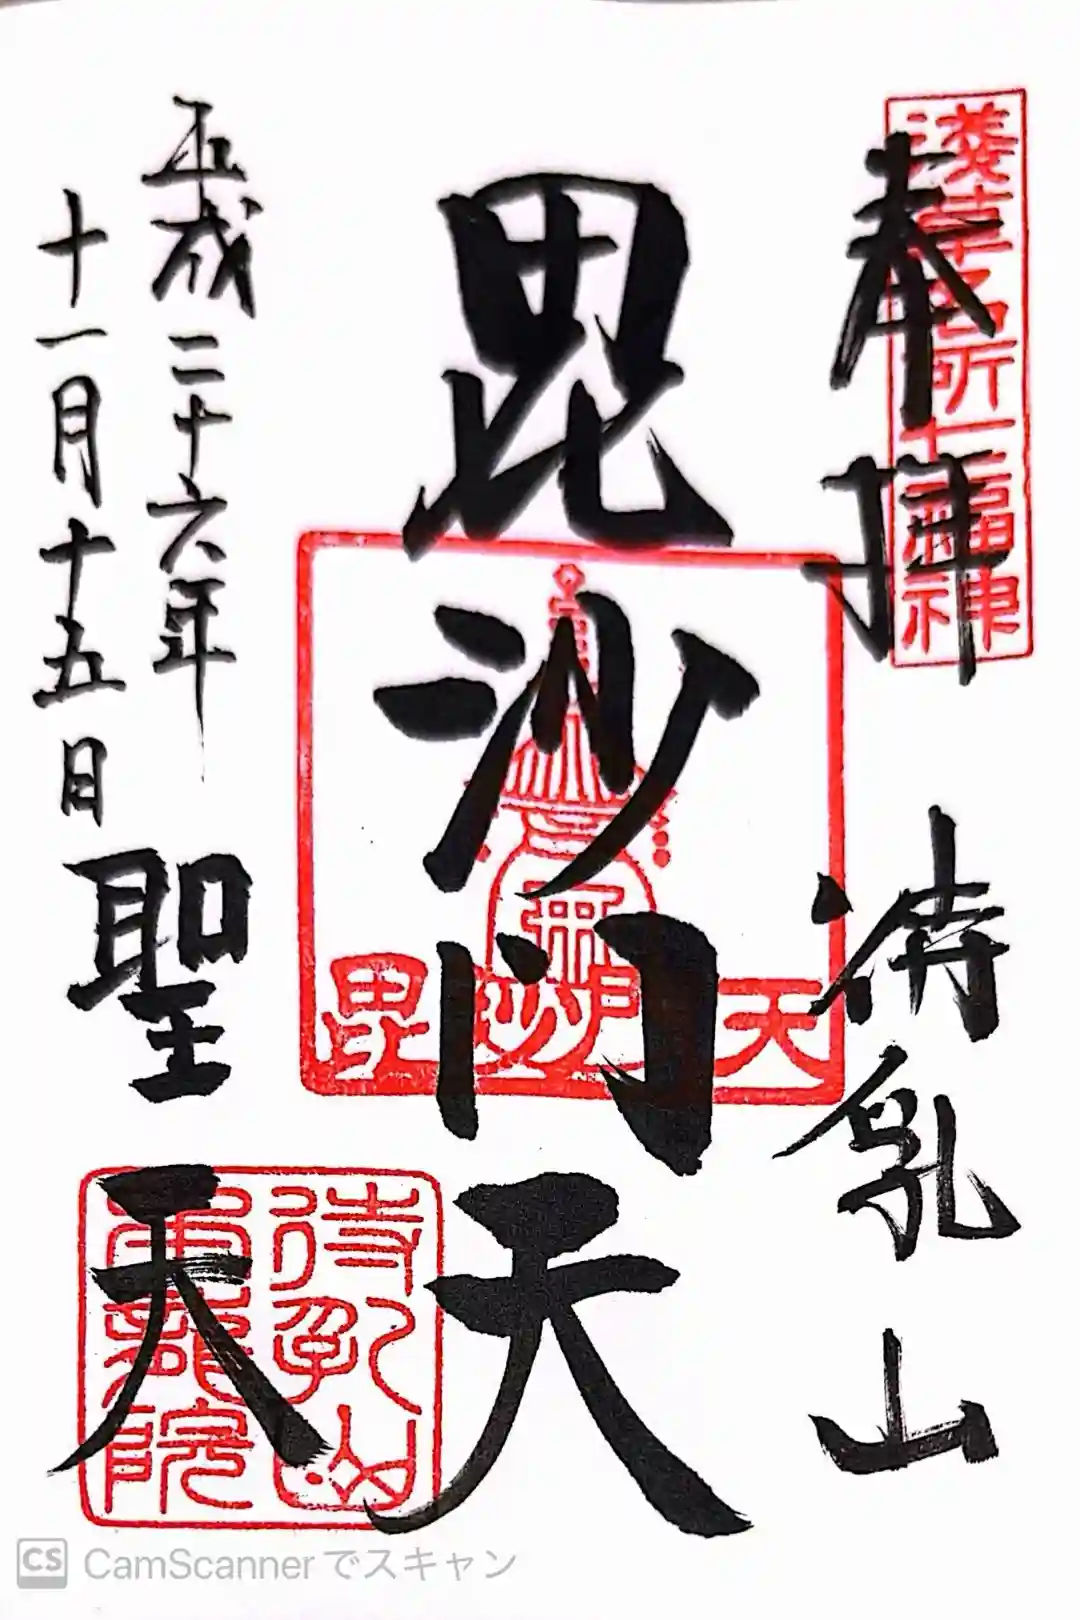 浅草名所七福神
奉拝
待乳山
毘沙門天
毘沙門天
平成二十六年
十一月十五日
聖天
待乳山
本龍院
CS CamScannerでスキャン